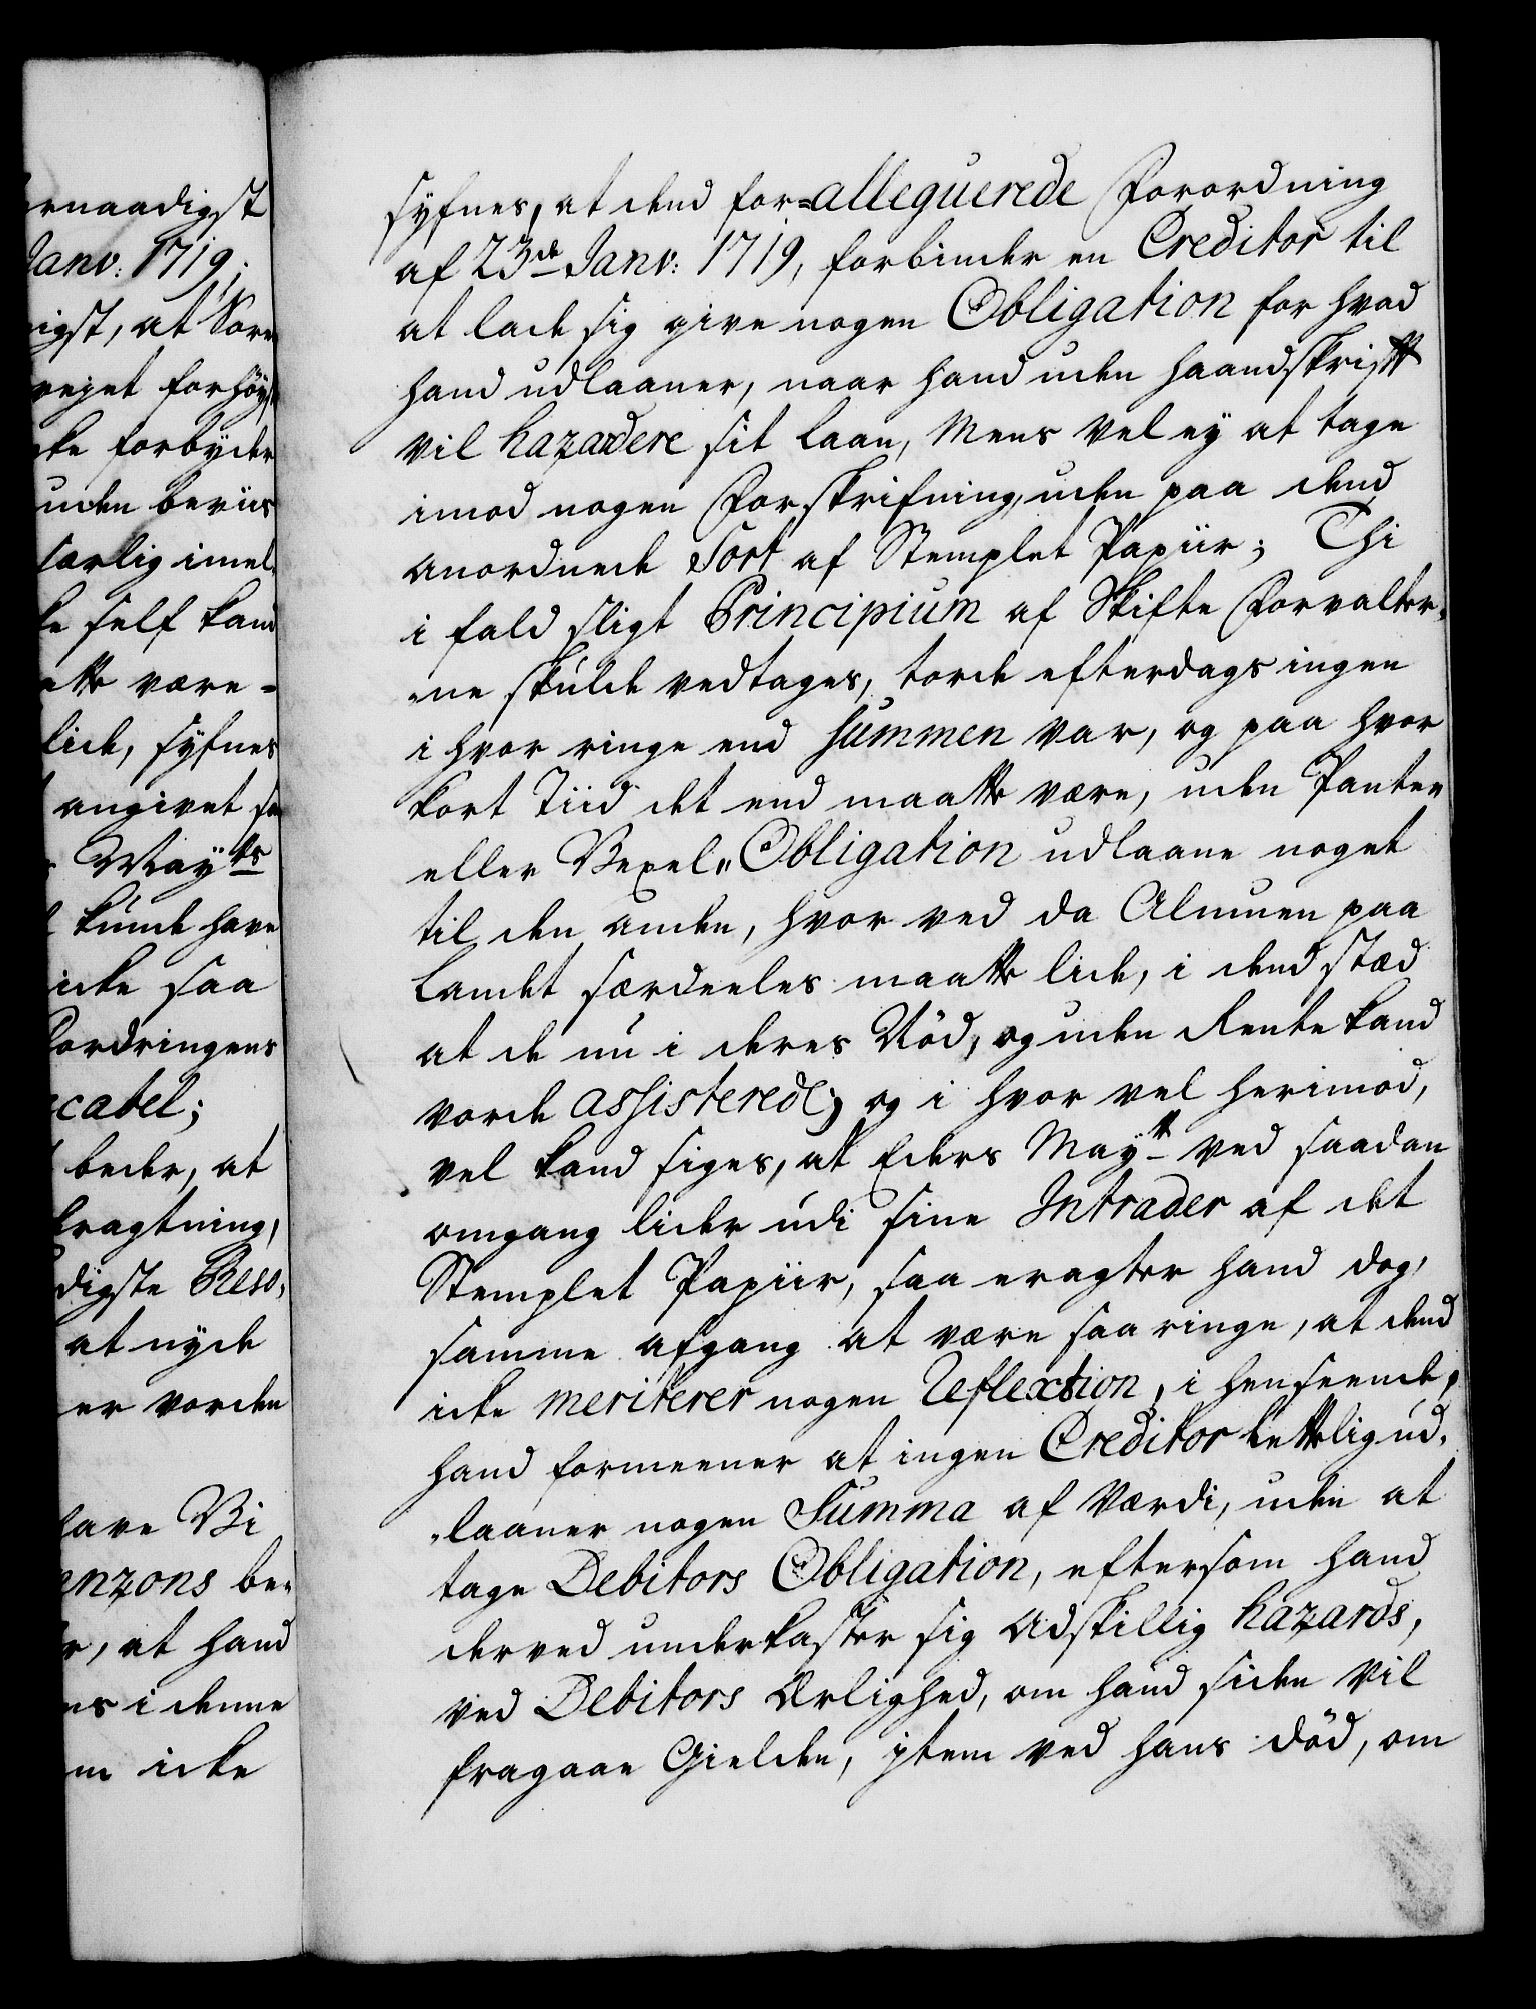 ernaadigst
Janv: 1719;
igst, at Sore
reget forhøy
cke forbyder
uden beviis
særlig imel
ke self kand
atte være=
lide, syfnes
angivet
Mayts
kunde have
icke saa
Fordringens
catel;
beder, at
tragtning,
digste Reso,
at nyde
er vorden
lave Vi
enzons be„
r, at hand
es i denne
m icke
syfnes, at dend for=alleguerede Forordning
af 23de Janv: 1719, forbinder en Creditor til
at lade sig give nogen Obligation for hvad
hand udlaaner, naar hand uden Haandskrift
vil hazardere sit Laan, Mens vel ey at tage
imod nogen Forskrifning, uden paa dend
anordnede Sort af Stemplet Papiir; Thi
i fald sligt Principium af Skifte Forvalter„
„ne skulde vedtages, torde efterdags ingen
i hvor ringe end Summen var, og paa hvor
kort Tiid det end maatte være, uden Panter
eller Vexel„Obligation udlaane noget
til den anden, hvor ved da Almuen paa
Landet særdeeles maatte lide, i dend stæd
at de nu i deres Nød, og uden Rente kand
vorde assisterede; og i hvor vel herimod,
vel kand siges, at Eders Maytt ved saadan
omgang lider udi sine Intrader af det
Stemplet Papiir, saa eragter hand dog,
samme afgang at være saa ringe, at dend
icke meriterer nogen Reflextion, i henseende,
hand formeener at ingen Creditor lettelig ud„
„laaner nogen Summa af Værdi, uden at
tage Debitors Obligation, eftersom hand
derved underkaster sig adskillig hazards,
ved Debitors Ærlighed, om hand siden vil
fragaae Gielden, jtem ved hans død, om